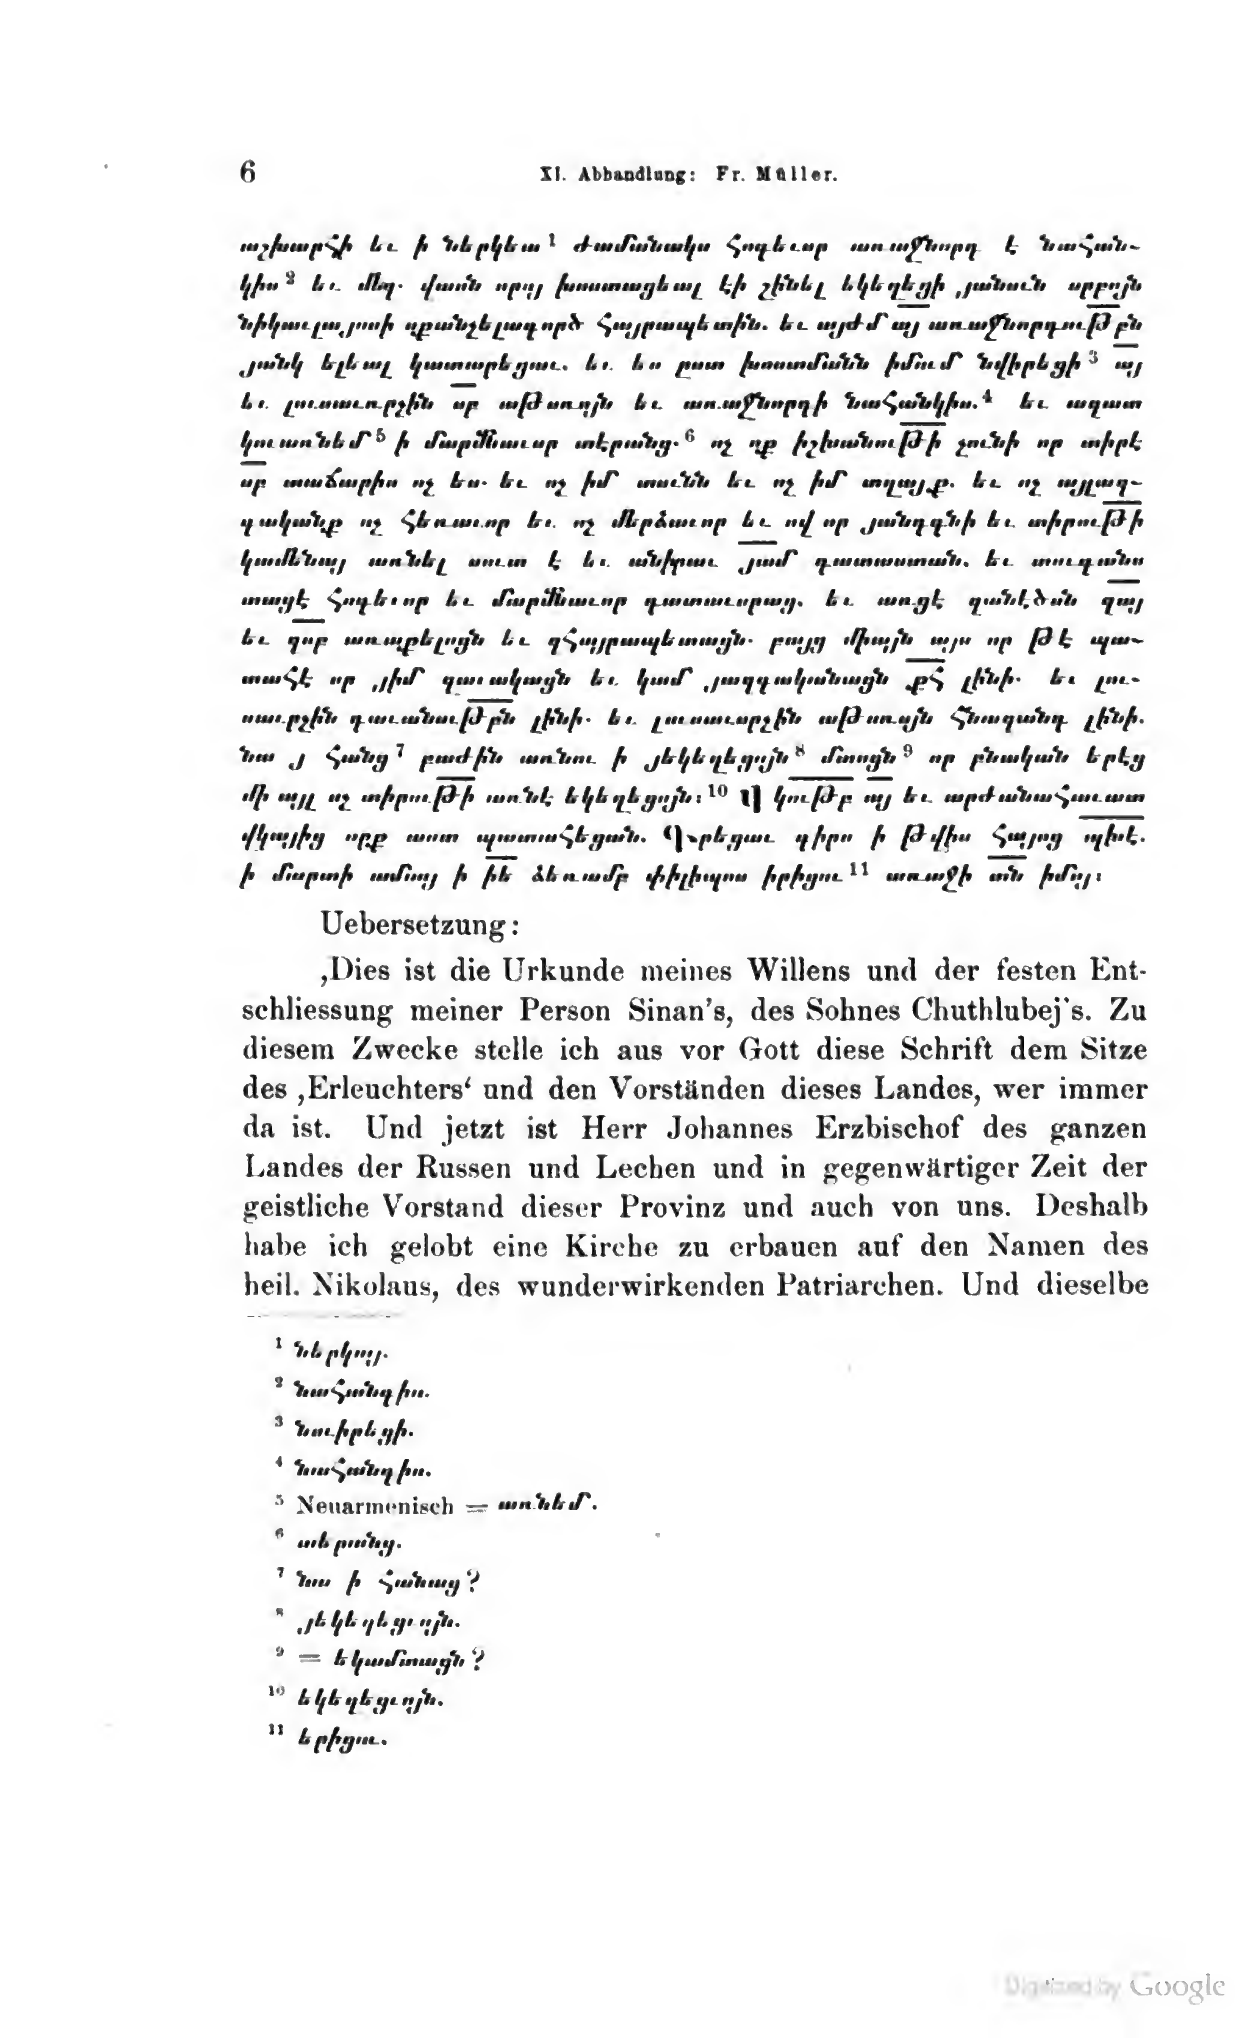 6 XI. Abhandlung: Fr. Müller.
աշխարհի եւ ի ներկեա¹ ժամանակս հոգեւոր առաջնորդ է նահան-
կիս² եւ մեզ. վասն որոյ խոստացեալ էի շինել եկեղեցի յանուն սրբոյն
նիկաւլայոսի սքանչելագործ հայրապետին. եւ այժմ այ առաջնորդութբն
յանկ ելեալ կատարեցաւ. եւ ես ըստ խոստմանն իմում նվիրեցի³ այ
եւ լուսաւորչին սբ աթոռոյն եւ առաջնորդի նահանկիս.⁴ եւ ազատ
կուառնեմ⁵ ի մարմնաւոր տէրանց.⁶ ոչ ոք իշխանութի չունի որ տիրէ
սբ տաճարիս ոչ ես. եւ ոչ իմ տունն եւ ոչ իմ տղայք. եւ ոչ այլազ-
գականք ոչ հեռաւոր եւ ոչ մերձաւոր եւ ով որ յանդգնի եւ տիրութի
կամենայ առնել սուտ է եւ անիրաւ յամ դատաստան. եւ տուգանս
տացէ հոգեւոր եւ մարմնաւոր դատաւորաց. եւ առցէ զանէծսն զայ
եւ զսբ առաքելոցն եւ զհայրապետացն. բայց միայն այս որ թէ պա-
տահէ որ յիմ զաւակացն եւ կամ յազգականացն քհ լինի. եւ լու-
սաւրչին դաւանութբն լինի. եւ լուսաւորչին աթոռոյն հնազանդ լինի.
նա յ հանց⁷ բաժին առնու ի յեկեղեցոյն⁸ մտոցն⁹ որ բնական երէց
մի այլ ոչ տիրութի առնէ եկեղեցոյն։¹⁰ Վկութբ այ եւ արժանահաւատ
վկայից որք աստ պատահեցան. Գրեցաւ գիրս ի թվիս հայոց պիսէ.
ի մարտի ամսոյ ի իե ձեռամբ փիլիպոս իրիցու¹¹ առաջի տն իմոյ։
Uebersetzung:
‚Dies ist die Urkunde meines Willens und der festen Ent-
schliessung meiner Person Sinan's, des Sohnes Chuthlubej's. Zu
diesem Zwecke stelle ich aus vor Gott diese Schrift dem Sitze
des ‚Erleuchters‘ und den Vorständen dieses Landes, wer immer
da ist. Und jetzt ist Herr Johannes Erzbischof des ganzen
Landes der Russen und Lechen und in gegenwärtiger Zeit der
geistliche Vorstand dieser Provinz und auch von uns. Deshalb
habe ich gelobt eine Kirche zu erbauen auf den Namen des
heil. Nikolaus, des wunderwirkenden Patriarchen. Und dieselbe
¹ ներկայ.
² նահանգիս.
³ նուիրեցի.
⁴ նահանգիս.
⁵ Neuarmenisch = առնեմ.
⁶ տերանց.
⁷ նա ի հանաց?
⁸ յեկեղեցւոյն.
⁹ = եկամտացն?
¹⁰ եկեղեցւոյն.
¹¹ երիցու.
Digitized by Google